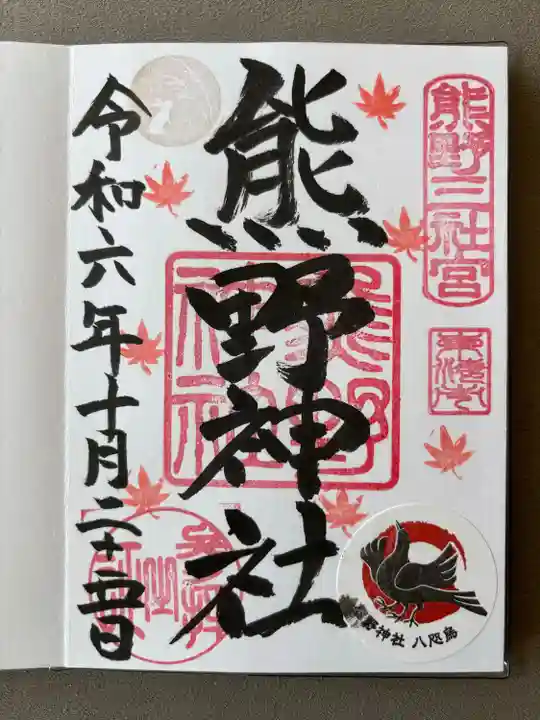 熊野三社宮
熊野神社
令和六年十月二十五日
熊野神社
熊野神社 八咫烏